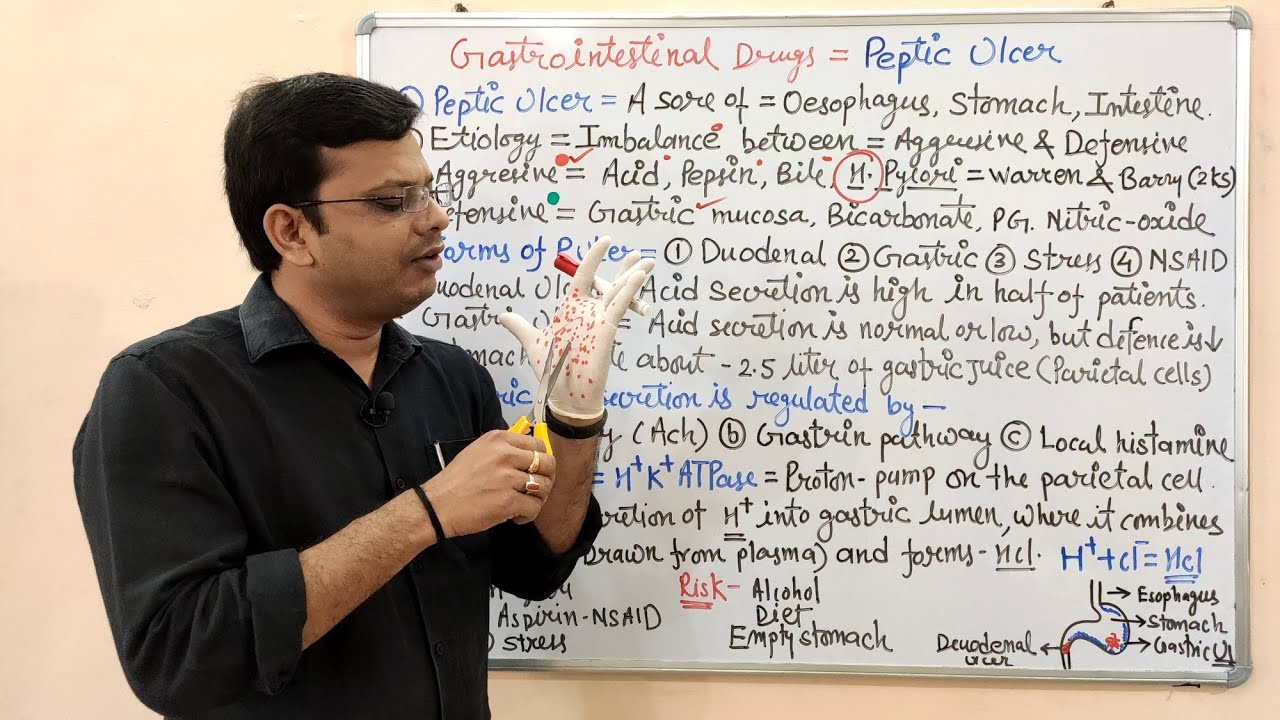 Gastrointestinal Drugs = Peptic Ulcer
Peptic Ulcer = A sore of = Oesophagus, Stomach, Intestine.
Etiology = Imbalance between = Aggressive & Defensive
Aggresive = Acid, Pepsin, Bile, H. Pylori = Warren & Barry (2ks)
= Gastric mucosa, Bicarbonate, PG. Nitric-oxide
of = ① Duodenal ② Gastric ③ Stress ④ NSAID
Acid secretion is high in half of patients.
= Acid secretion is normal or low, but defence is ↓
about - 2.5 liter of gastric juice (Parietal cells)
secretion is regulated by -
(Ach) ⓑ Gastrin pathway ⓒ Local histamine
= H+K+ATPase = Proton-pump on the parietal cell.
of H+ into gastric lumen, where it combines
Drawn from plasma) and forms - Hcl. H+ + cl- = Hcl
Risk - Alcohol
Aspirin-NSAID Diet
stress Empty stomach
Esophagus
Stomach
Gastric
Deuodenal
ulcer